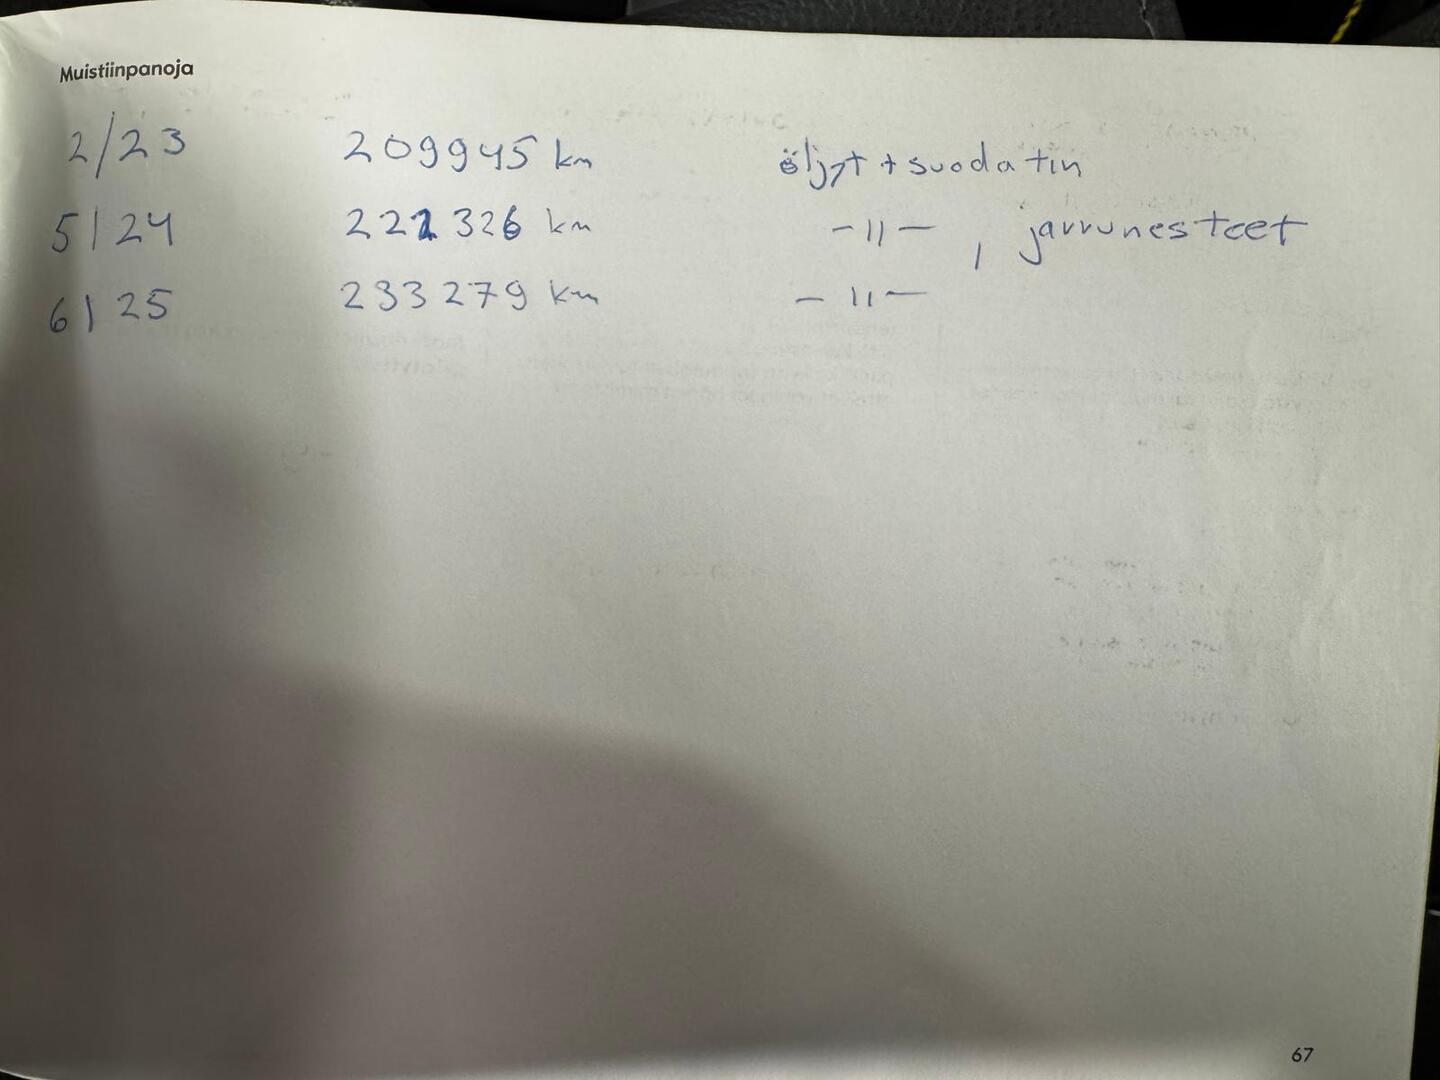 Muistiinpanoja
2/23 209945 km öljyt + suodatin
5/24 221326 km -11- , jarrunesteet
6/25 233279 km -11-
67